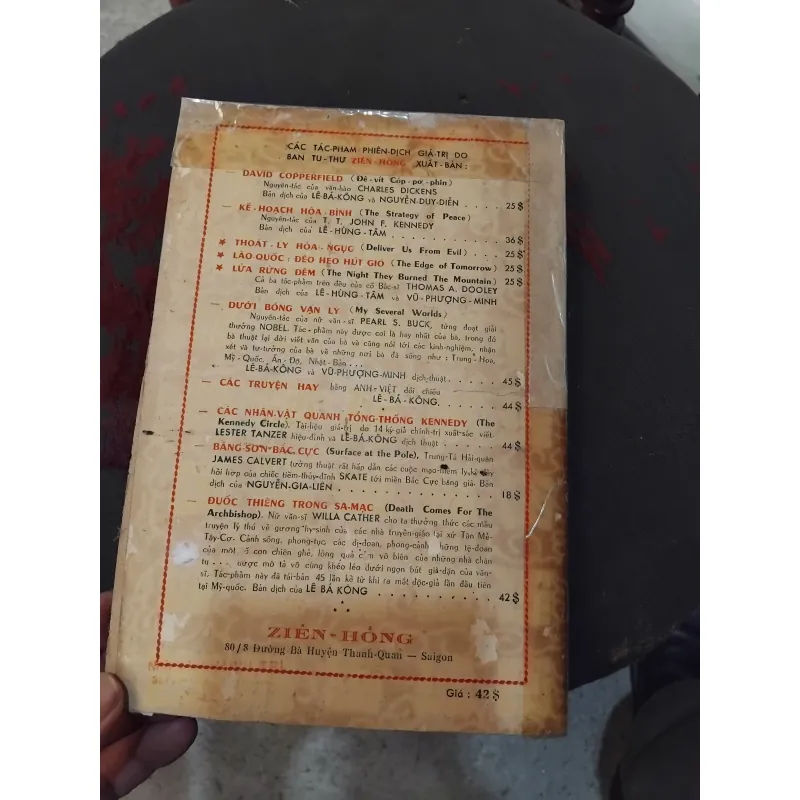 CÁC TÁC-PHẨM PHIÊN-DỊCH GIÁ-TRỊ DO
BAN TU-THƯ ZIÊN-HỒNG XUẤT-BẢN :
— DAVID COPPERFIELD (Đê-vít Cóp-pơ-phin)
Nguyên-tác của văn-hào CHARLES DICKENS
Bản dịch của LÊ-BÁ-KÔNG và NGUYỄN-DUY-DIỄN . . . . 25 $
— KẾ-HOẠCH HÒA-BÌNH (The Strategy of Peace)
Nguyên-tác của T. T. JOHN F. KENNEDY
Bản dịch của LÊ-HÙNG-TÂM . . . . . . . . . 36 $
★ THOÁT-LY HỎA-NGỤC (Deliver Us From Evil) . . . 25 $
★ LÀO-QUỐC : ĐÈO HEO HÚT GIÓ (The Edge of Tomorrow) 25 $
★ LỬA RỪNG ĐÊM (The Night They Burned The Mountain) 25 $
Cả ba tác-phẩm trên đều của cố Bác-sĩ THOMAS A. DOOLEY
Bản dịch của LÊ-HÙNG-TÂM và VŨ-PHƯỢNG-MINH
— DƯỚI BÓNG VẠN LÝ (My Several Worlds)
Nguyên-tác của nữ văn-sĩ PEARL S. BUCK, từng đoạt giải
thưởng NOBEL. Tác-phẩm này được coi là hay nhất của bà, trong đó
bà thuật lại đời viết văn của bà và cũng nói tới các kinh-nghiệm, nhận
xét và tư-tưởng của bà về những nơi bà đã sống như : Trung-Hoa,
Mỹ-Quốc, Ấn-Độ, Nhật-Bản . . .
LÊ-BÁ-KÔNG và VŨ-PHƯỢNG-MINH dịch-thuật . . . . 45 $
— CÁC TRUYỆN HAY bằng ANH-VIỆT đối chiếu
LÊ-BÁ-KÔNG. . . . . 44 $
— CÁC NHÂN-VẬT QUANH TỔNG-THỐNG KENNEDY (The
Kennedy Circle). Tài-liệu giá-trị do 14 ký-giả chính-trị xuất-sắc viết.
LESTER TANZER hiệu-đính và LÊ-BÁ-KÔNG dịch thuật . . . 44 $
BĂNG-SƠN BẮC-CỰC (Surface at the Pole), Trung-Tá Hải-quân
JAMES CALVERT tường thuật rất hấp dẫn các cuộc mạo-hiểm ly-kỳ
hồi hộp của chiếc tiềm-thủy-đĩnh SKATE tới miền Bắc Cực băng giá. Bản
dịch của NGUYỄN-GIA-LIÊN . . . . . . . . . 18 $
— ĐUỐC THIÊNG TRONG SA-MẠC (Death Comes For The
Archbishop). Nữ văn-sĩ WILLA CATHER cho ta thưởng thức các mẩu
truyện lý thú về gương hy-sinh của các nhà truyền-giáo tại xứ Tân Mễ-
Tây-Cơ. Cảnh sống, phong-tục, các dị-đoan, phong-cảnh những tệ-đoan
của một con chiên ghẻ, lòng quả vô biên của những nhà chân
tu . . . được mô tả vô cùng khéo léo dưới ngọn bút già-dặn của văn-
sĩ. Tác-phẩm này đã tái-bản 45 lần kể từ khi ra mắt độc-giả lần đầu tiên
tại Mỹ-quốc. Bản dịch của LÊ BÁ KÔNG . . . . . . . . 42 $
ZIÊN-HỒNG
80/8 Đường Bà Huyện Thanh-Quan — Saigon
Giá : 42 $